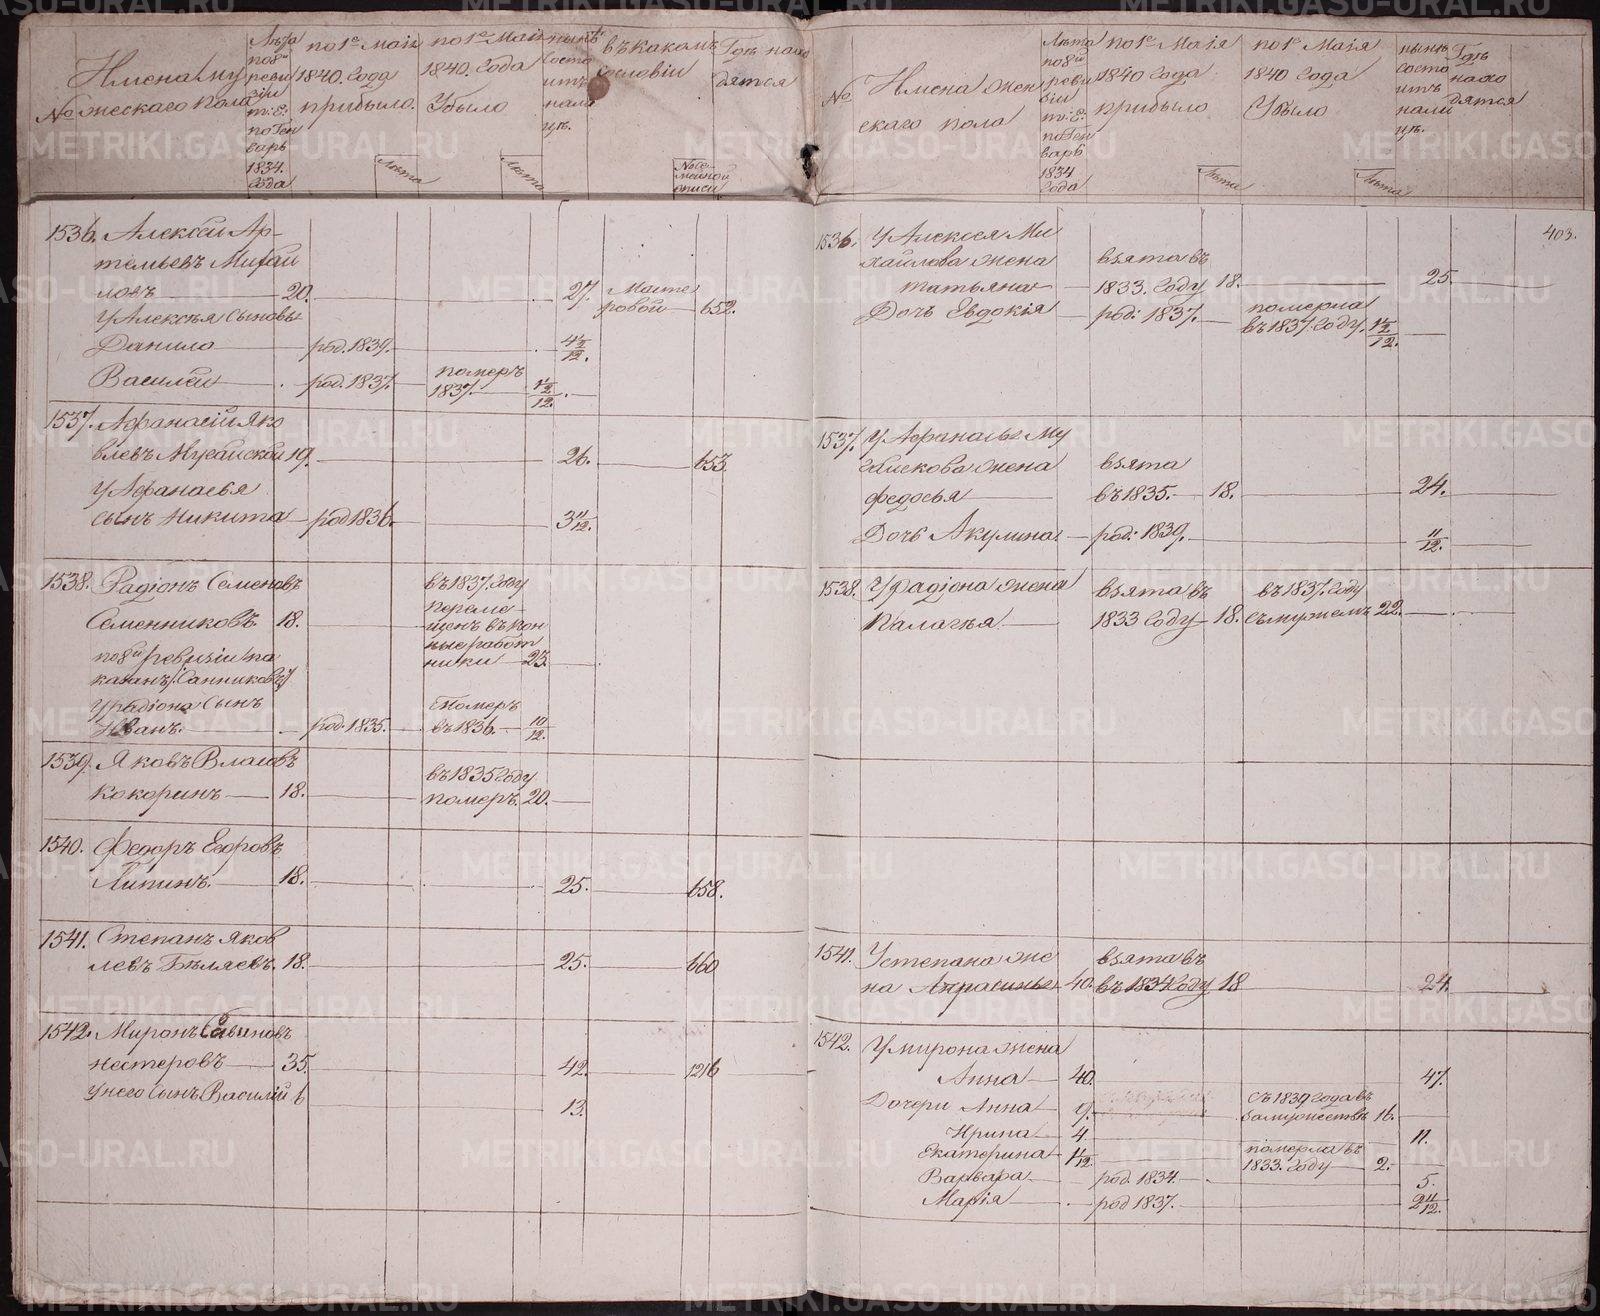 №
Имена му
жескаго пола
Лѣта
по 8й
реви
зіи
т: е:
по Ген
варь
1834.
Года
по 1е Маія
1840. Года
прибыло.
Лѣта
по 1е Маія
1840. Года
Убыло
Лѣта
нынѣ
состо
итъ
нали
цѣ.
въ какомъ
сословіи
№ се-
мейной
описи
Гдѣ нахо
дятся
1536. Алексѣй Ар-
темьевъ Михай
ловъ 20. 27. Масте
ровой 652.
У Алексѣя сыновья
Данило род. 1839.
Василей род. 1837. померъ
1837.
1537. Афанасій Яко
влевъ 19. 26. 653.
У Афанасья
сынъ Никита род 1836. 3 11/12.
1538. Радіонъ Семеновъ
Семенниковъ. 18.
въ 1837. Году
переме-
щенъ въ кон
ные работ
ники 23.
по 8й ревизіи по
казанъ /: Санниковъ :/
У Радіона сынъ
Иванъ. род. 1835. Померъ
въ 1836. 10/12.
1539. Яковъ Власовъ
Кокоринъ 18. въ 1835 Году
померъ. 20.
1540. Федоръ Егоровъ
Липинъ. 18. 25. 658.
1541. Степанъ Яков
левъ Бѣляевъ. 18. 25. 660
1542. Миронъ
Нестеровъ 35. 42. 1216
У него сынъ Василій 6 13.
№
Имена жен
скаго пола
Лѣта
по 8й
реви
зіи
т: е:
по Ген
варь
1834
Года
по 1е Маія
1840 Года
прибыло
Лѣта
по 1е Маія
1840 Года
Убыло
Лѣта
нынѣ
состо
итъ
нали
цѣ.
Гдѣ
нахо
дятся
403.
1536. У Алексея Ми
хайлова жена взята въ
Татьяна 1833. Году 18. 25.
Дочь Евдокія род: 1837. померла
въ 1837. Году.
1537. У Афанасье
жена взята
Федосья въ 1835. 18. 24.
Дочь Акулина. род: 1839. 11/12.
1538. У Радіона жена взята въ въ 1837. Году
Палагѣя 1833 Году 18. съ мужемъ 22.
1541. У Степана же взята въ
на 40. въ 1834 Году 18 24.
1542. У Мирона жена
Анна 40. 47.
Дочери Анна 9. Съ 1839 года въ
замужествѣ 16.
Ирина 4. 11.
Екатерина померла въ
1833. Году 2.
Варвара род. 1834. 5.
Марія род 1837. 2 11/12.
METRIKI.GASO-URAL.RU